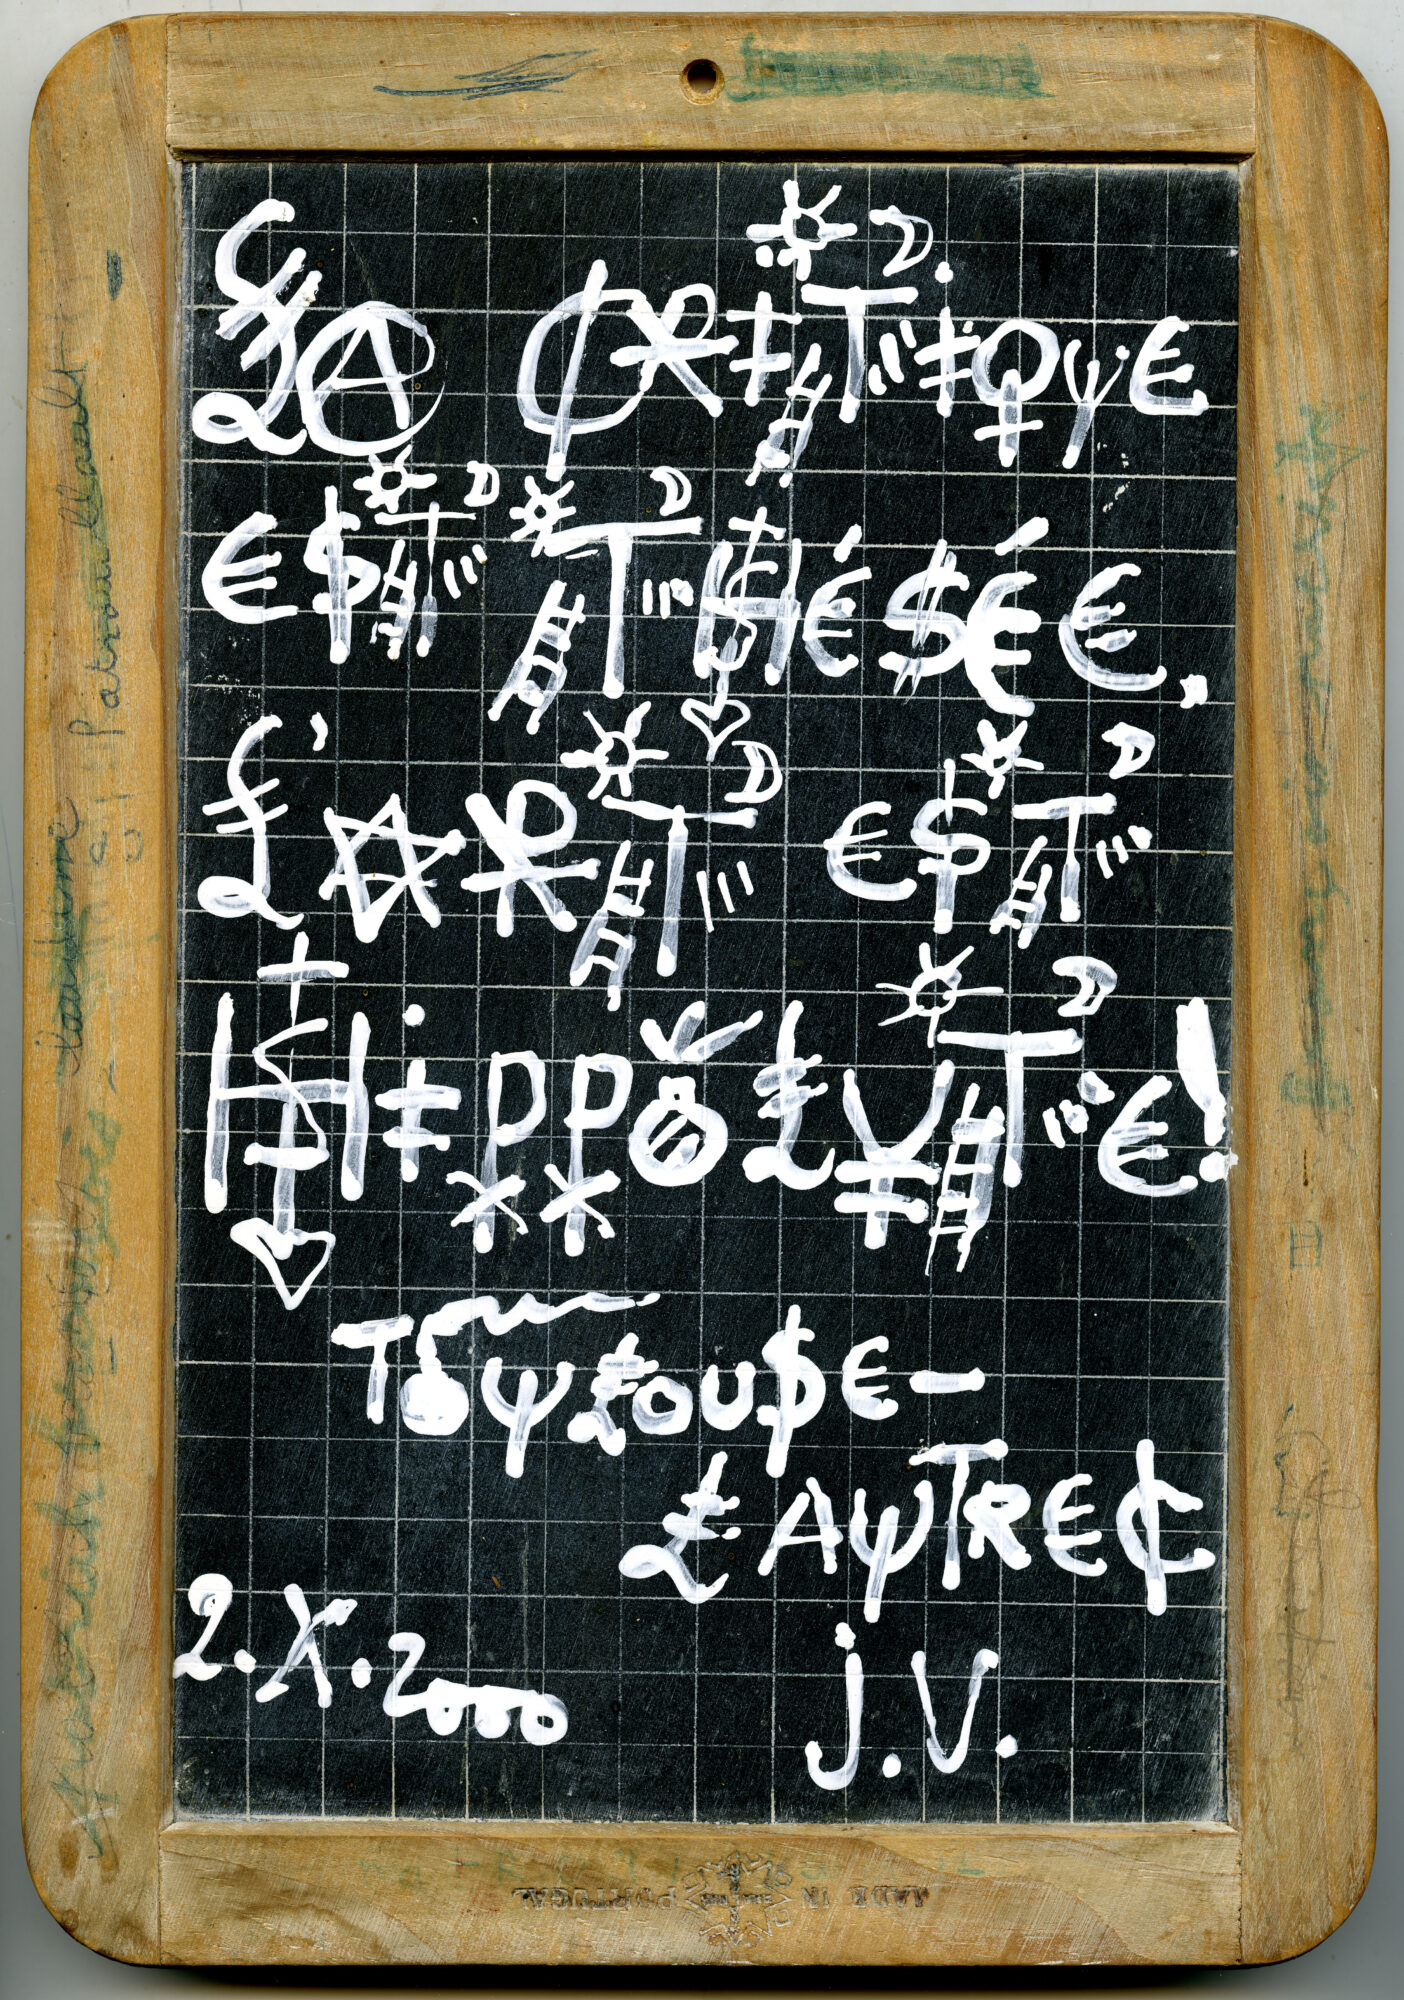 LA CRITIQUE
EST THÉSÉE.
L'ART EST
HIPPOLYTE!
TOULOUSE-
LAUTREC
2.X.2000
J.V.
MADE IN PORTUGAL